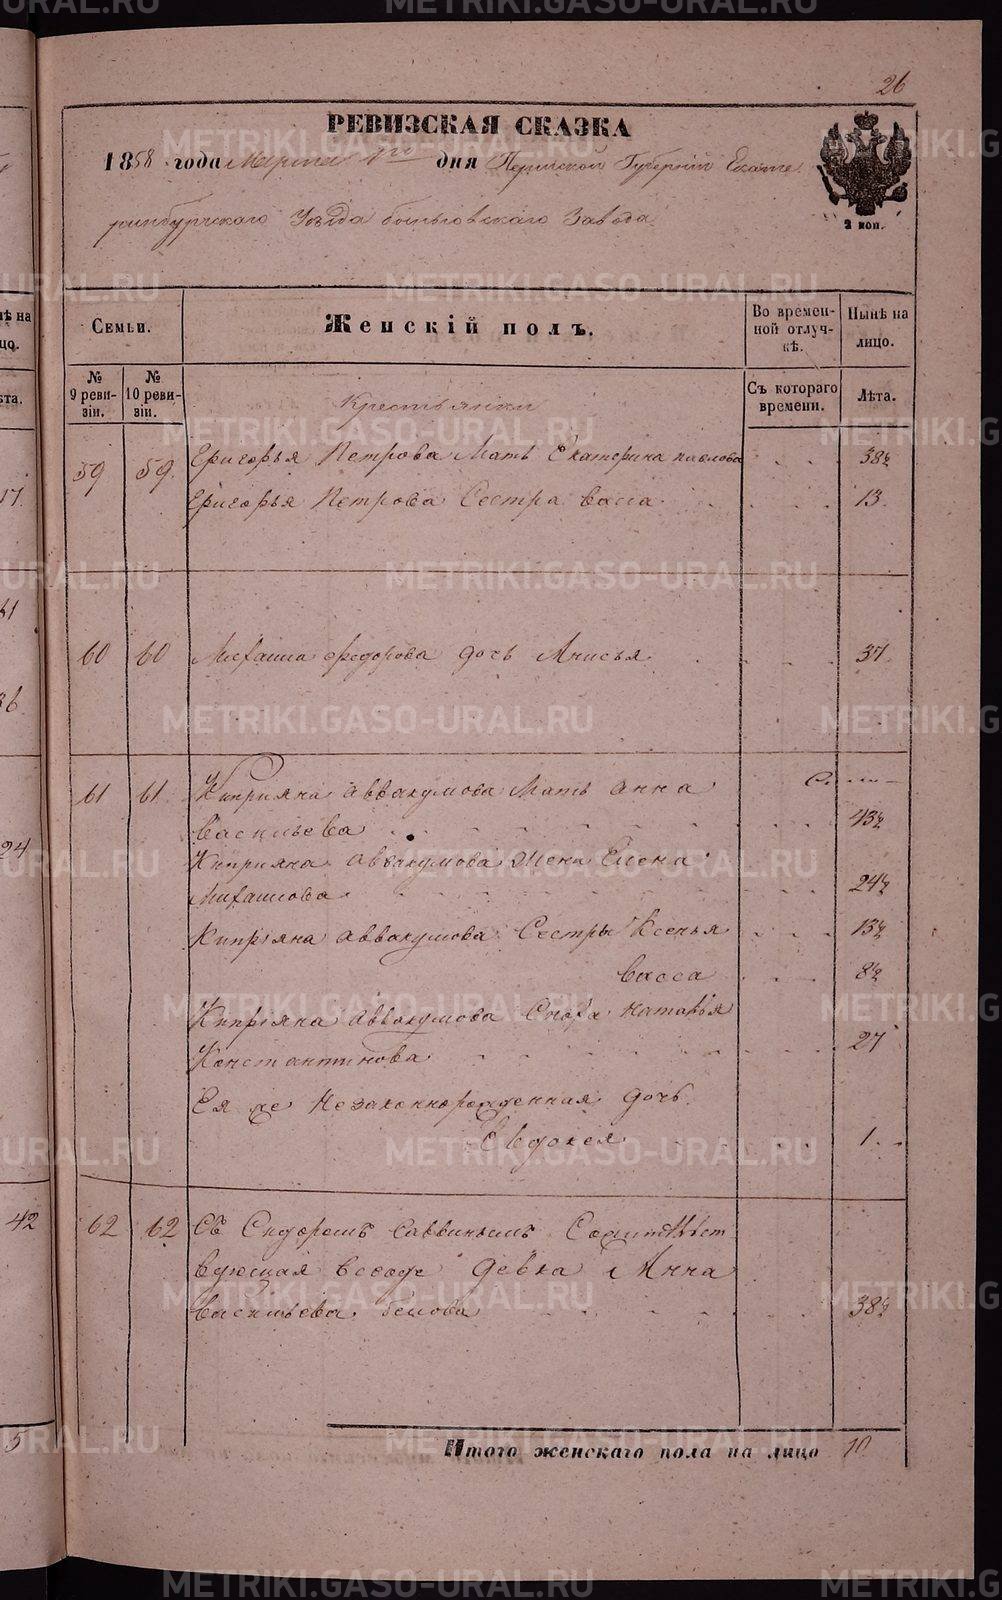 26
РЕВИЗСКАЯ СКАЗКА
1858 года Марта 1го дня Пермской Губерніи Екате
ринбургского Уѣзда быньговскаго Завода
2 коп.
Семьи.
Женскій полъ.
Во времен-
ной отлуч-
кѣ.
Нынѣ на
лицо.
№
9 реви-
зіи.
№
10 реви-
зіи.
Съ котораго
времени.
Лѣта.
Крестьянки
59 59. Григорья Петрова Мать Екатерина павлова 38½
Григорья Петрова Сестра васса 13
60 60 Михаила федорова дочь Анисья 37
61 61 Кипріяна Аввакумова Мать анна
васильева 43½
Кипріяна Аввакумова Жена Елена
Михаилова 24½
Кипріяна аввакумова Сестры Ксенья 13½
васса 8½
Кипріяна Аввакумова Сноха наталья
Константинова 27
Ея же Незаконнорожденная дочь
Евдокея 1
62 62 Съ Сидоромъ саввинымъ
девка Анна
васильева белова 38½
Итого женскаго пола на лицо 10
METRIKI.GASO-URAL.RU